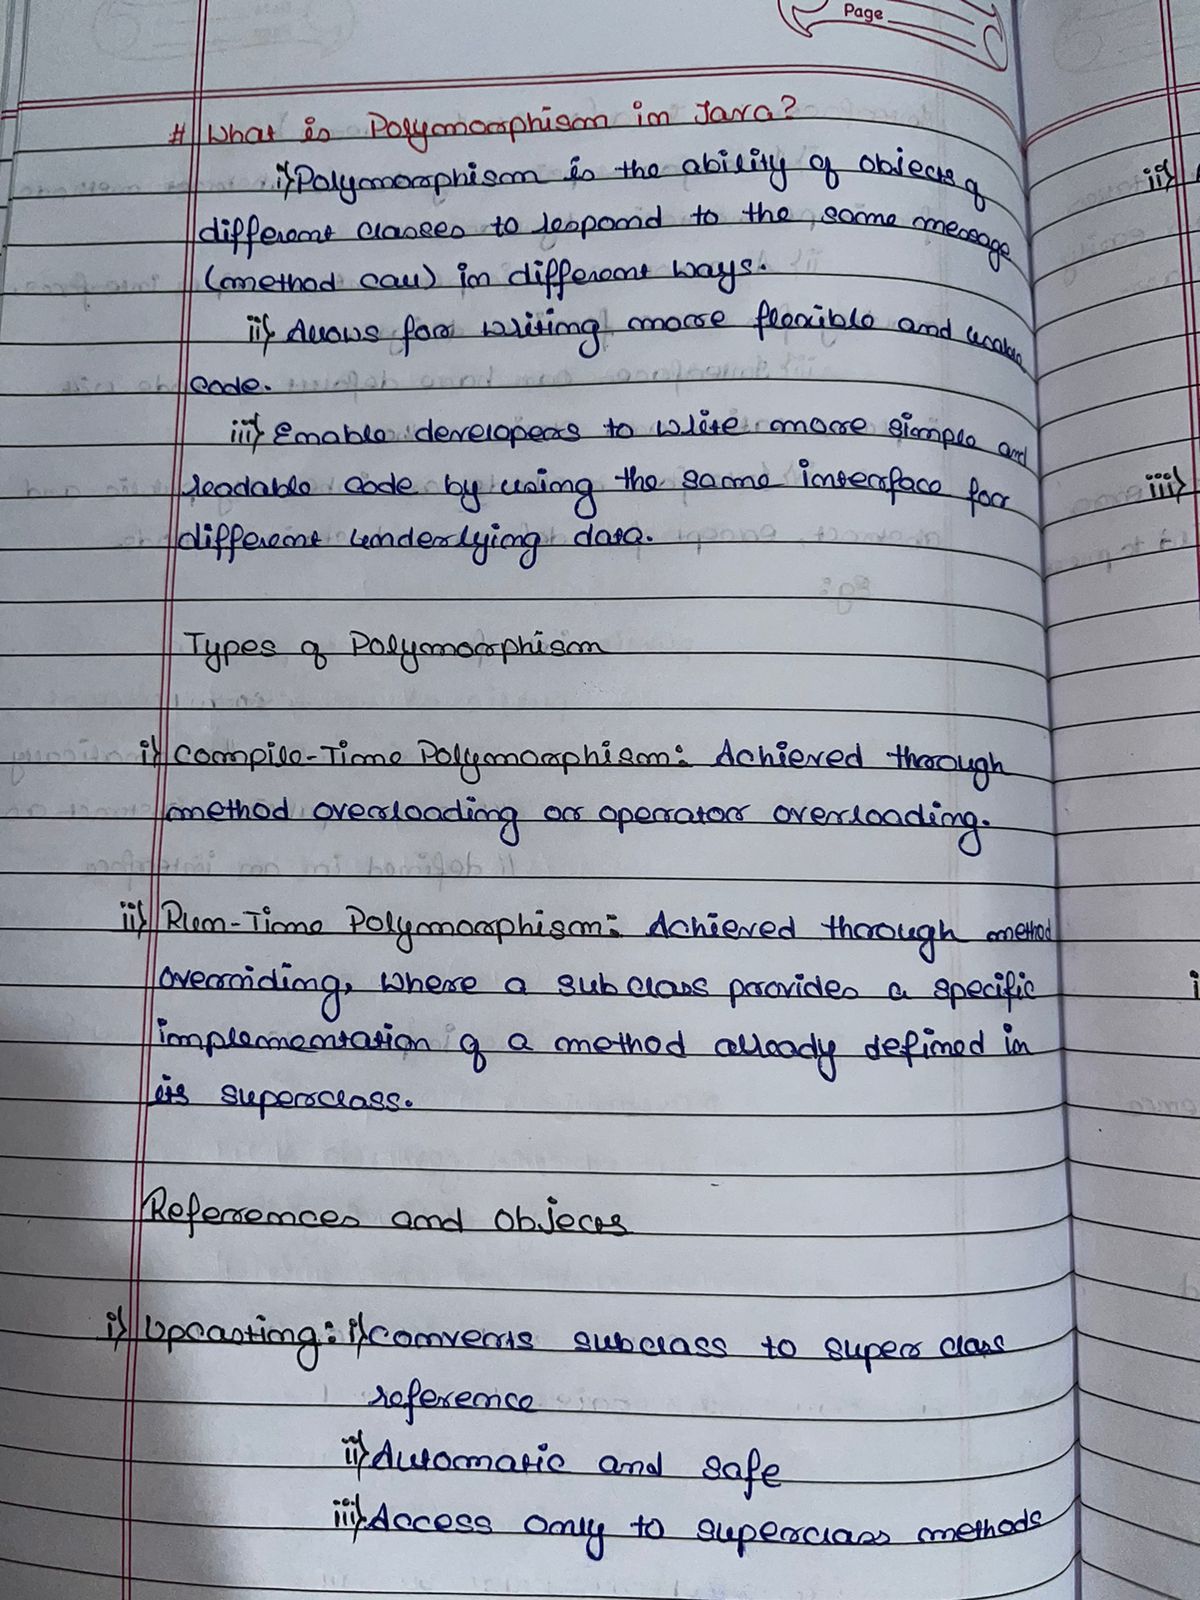 Page
# What is Polymorphism in Java?
i) Polymorphism is the ability of objects of
different classes to respond to the same message
(method call) in different ways.
ii) Allows for writing more flexible and
code.
iii) Enable developers to write more simple and
readable code by using the same interface for
different underlying data.
Types of Polymorphism
i) Compile-Time Polymorphism: Achieved through
method overloading or operator overloading.
ii) Run-Time Polymorphism: Achieved through method
overriding, where a subclass provides a specific
implementation of a method already defined in
its superclass.
References and Objects
i) Upcasting: i) Converts subclass to super class
reference
ii) Automatic and safe
iii) Access only to superclass methods
ii)
iii)